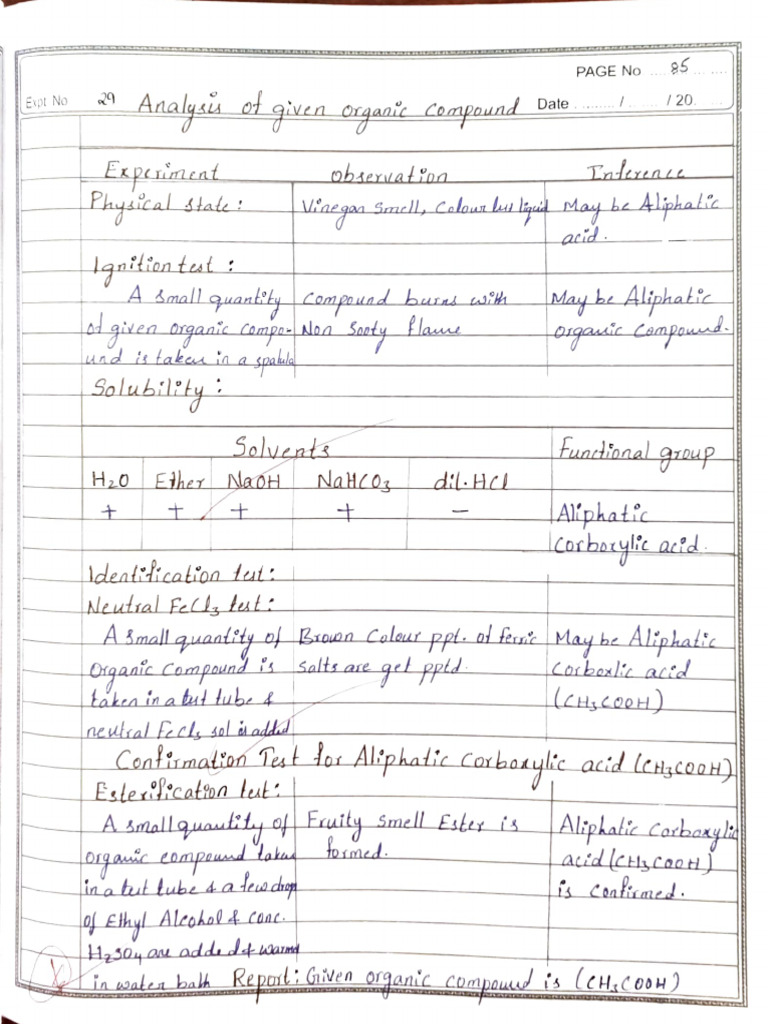 PAGE No 85
Expt No 29 Analysis of given organic compound Date ......... / ....... / 20.
Experiment observation Inference
Physical state: Vinegar smell, Colour less liquid May be Aliphatic
acid.
Ignition test:
A small quantity Compound burns with May be Aliphatic
of given organic compo- Non Sooty flame organic compound.
und is taken in a spatula
Solubility:
Solvents Functional group
H2O Ether NaOH NaHCO3 dil.HCl
+ + + + - Aliphatic
Corboxylic acid.
Identification test:
Neutral FeCl3 test:
A small quantity of Brown Colour ppt. of ferric May be Aliphatic
Organic Compound is salts are get pptd. Corboxlic acid
taken in a test tube & (CH3COOH)
neutral FeCl3 sol is added
Confirmation Test for Aliphatic Corboxylic acid (CH3COOH)
Esterification test:
A small quantity of Fruity smell Ester is Aliphatic Corboxylic
organic compound taken formed. acid (CH3COOH)
in a test tube & a few drop is confirmed.
of Ethyl Alcohol & conc.
H2SO4 are added & warmed
in water bath Report: Given organic compound is (CH3COOH)